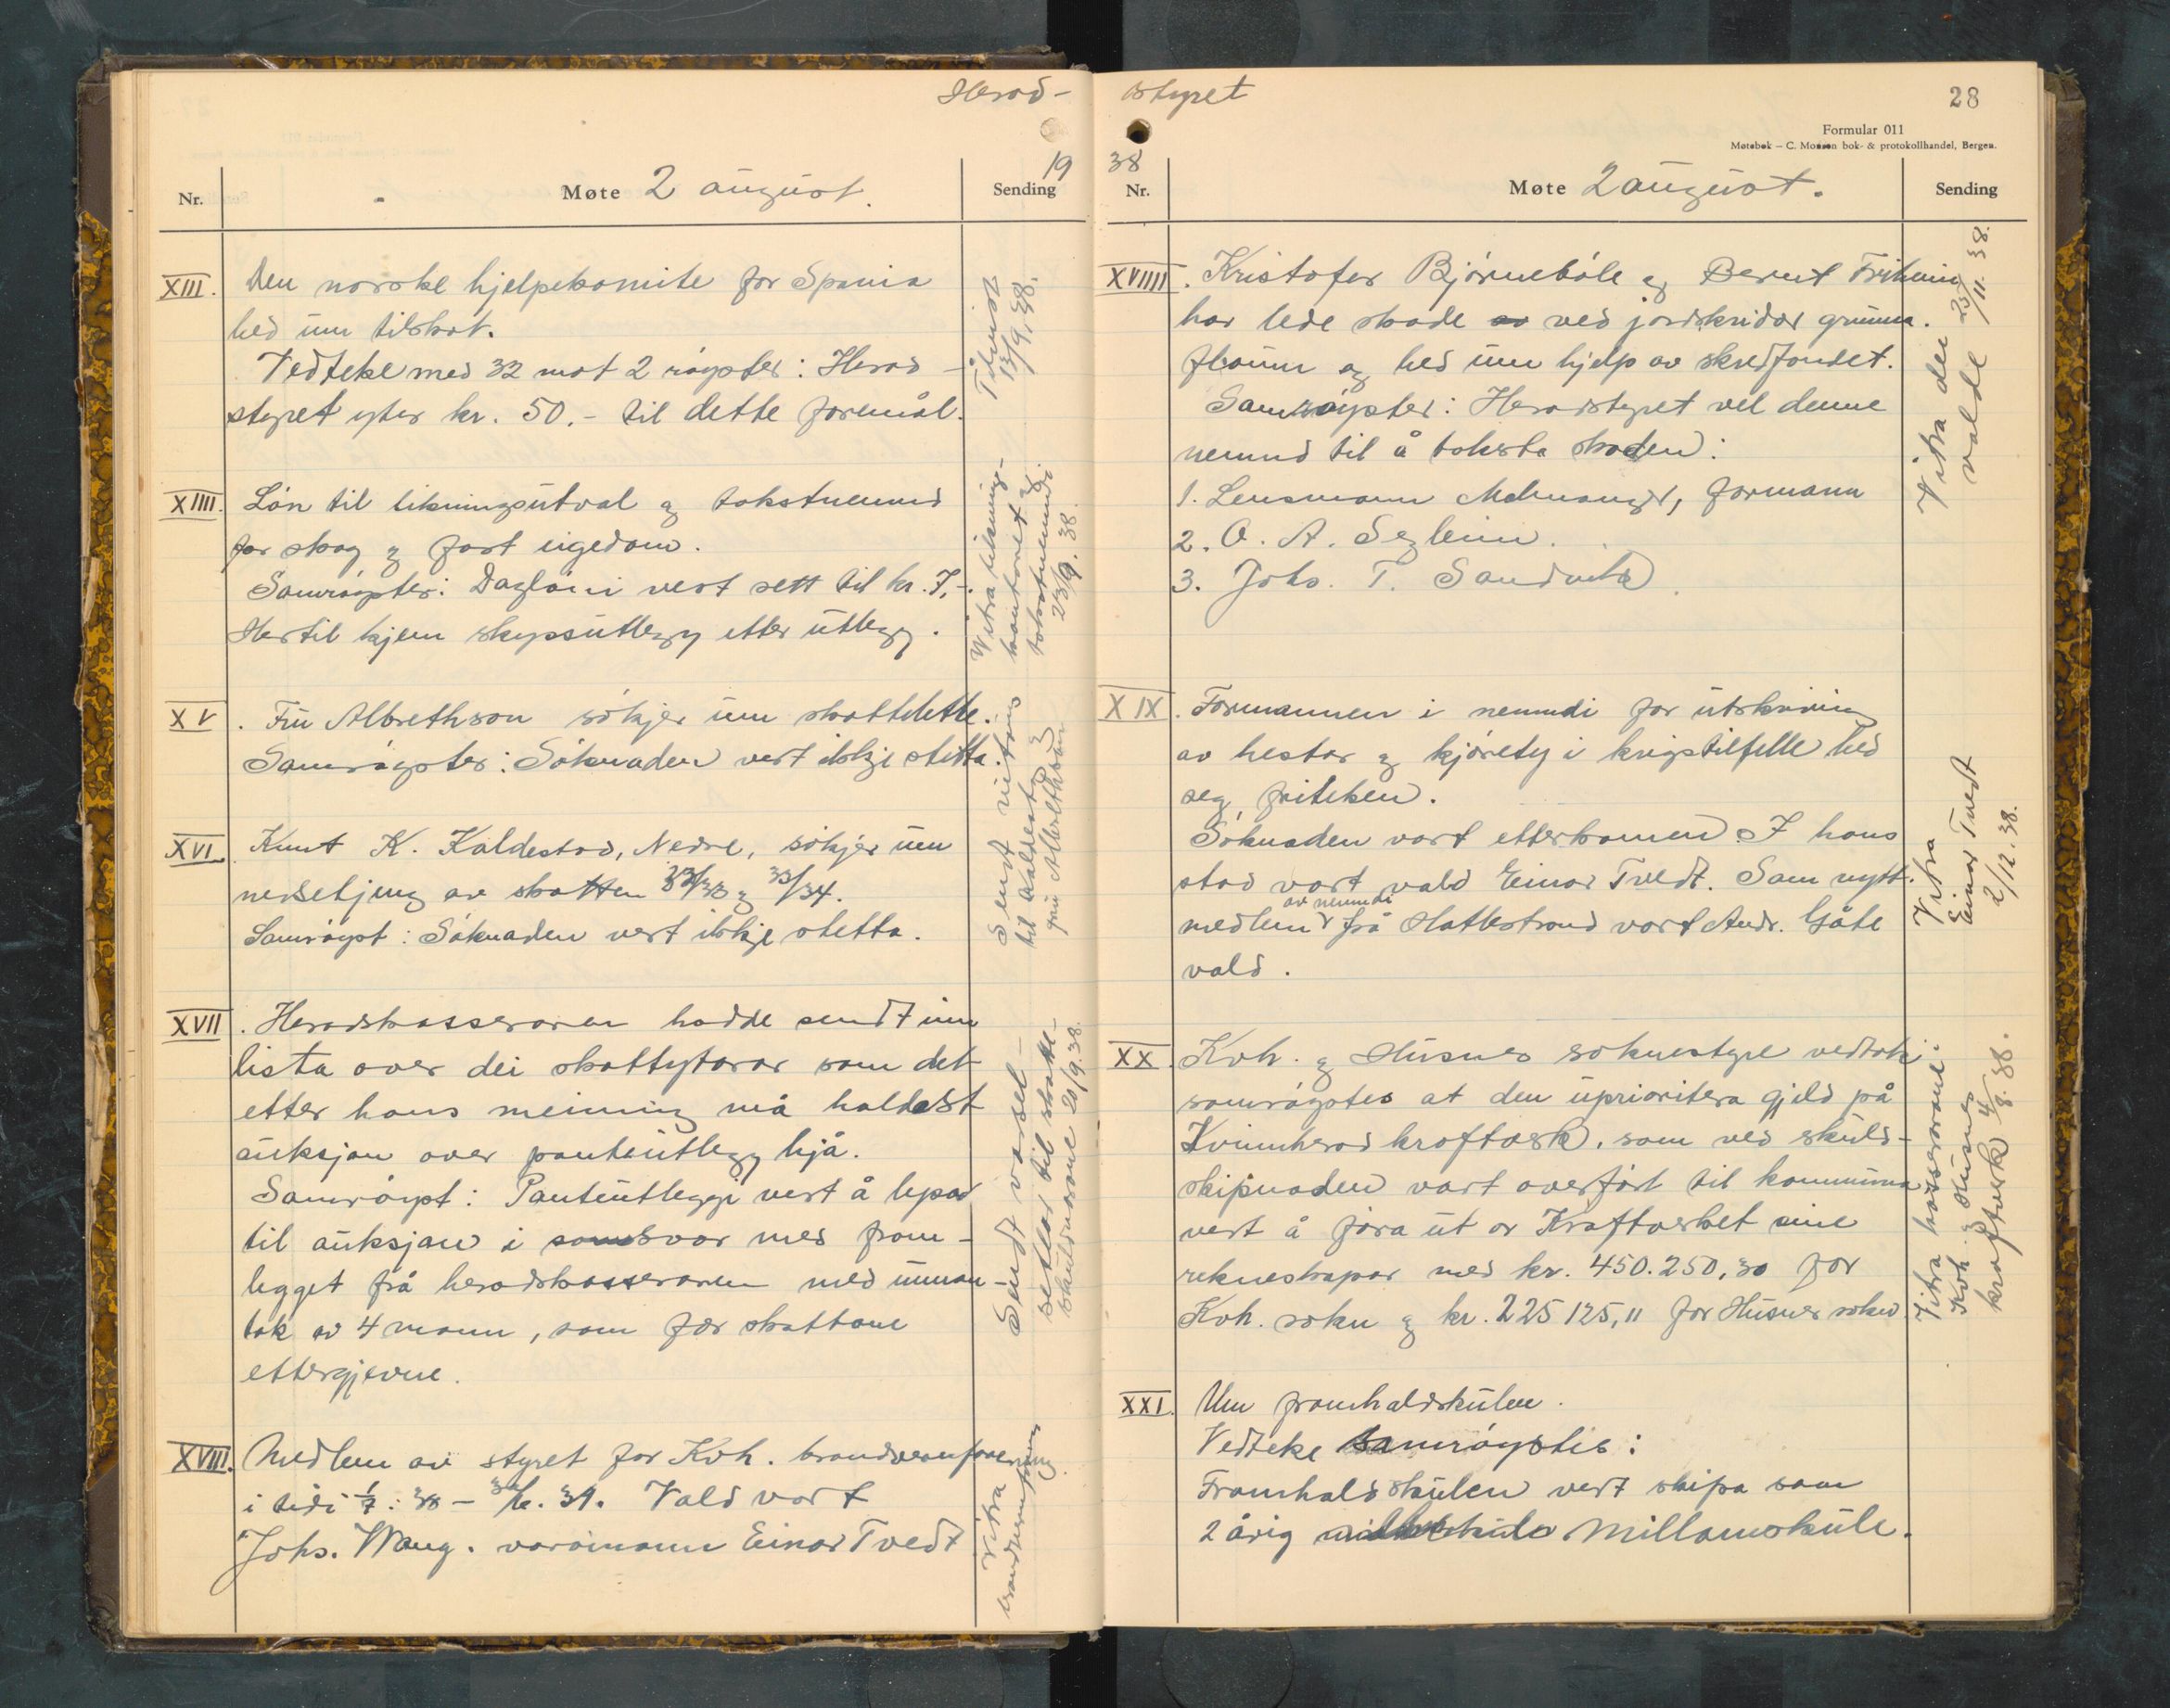 Herad-
styret
28
Formular 011
Møtebok – C. Monsen bok- & protokollhandel, Bergen.
19
38
Nr.
Møte 2 august.
Sending
XIII. Den norske hjelpekomite for Spania
bed um tilskot.
Vedteke med 32 mot 2 røyster: Herad-
styret yter kr. 50.- til dette foremål.
Tilvist
13/9.38.
XIIII. Lön til likningsutval og takstnemnd
for skog og fast eigedom.
Samröystes: Daglöni vert sett til kr. 7,-.
Hertil kjem skyssutlegg etter utlegg.
Vitra liknings-
kontoret og
takstnemndi
23/9.38.
XV. Fru Albrethson sökjer um skattelette.
Samröystes: Söknaden vert ikkje stetta.
XVI. Knut K. Kaldestad, Nedre, sökjer um
nedsetjing av skatten 32/33 og 33/34.
Samröyst: Söknaden vert ikkje stetta.
Sendt vitring
til Kaldestad og
fru Albrethson
XVII. Heradskasseraren hadde sendt inn
lista over dei skattytarar som det
etter hans meining må haldast
auksjon over panteutlegg hjå.
Samröyst: Panteutleggi vert å lysa
til auksjon i samsvar med fram-
legget frå heradskasseraren med unnan-
tak av 4 mann, som fær skattane
ettergjevne.
Sendt varsel-
setlar til skatte-
skuldnarane 20/9.38.
XVIII. Medlem av styret for Kvh. brandvernforening
i tidi 1/7.38 - 39. Vald vart
Johs. Wang. varamann Einar Tvedt
Vitra
brandvernforening
Nr.
Møte 2 august.
Sending
XVIIII. Kristofer Björnebóle og Bernt Triheim
har lide skade av ved jordskridor grunna.
flaum og bed um hjelp av skredfondet.
Samröystes: Heradstyret vel denne
nemnd til å taksta skaden:
1. Lensmann Melvanger, formann
2. O. A. Seglem.
3. Johs. T. Sandvik.
Vitra dei 25/11.38.
valde
XIX. Formannen i nemndi for utskriving
av hestar og kjörety i krigstilfelle bed
seg friteken.
Söknaden vart etterkomen. I hans
stad vart vald Einar Tvedt. Som nytt
av nemndi
medlem frå Hatlestrand vart Andr. Gåte
vald.
Vitra
Einar Tvedt
2/12.38.
XX. Kvh. og Husnes soknestyre vedtok
samröystes at den uprioritera gjeld på
Kvinnherad kraftverk, som ved skuld-
skipnaden vart överfört til kommuna
vert å föra ut av Kraftverket sine
rekneskapar med kr. 450.250,30 for
Kvh. sokn og kr. 225125,11 for Husnes sokn.
Vitra kasserarane.
Kvh. og Husnes
kraftverk 4/8.38.
XXI. Um framhaldskulen.
Vedteke samröystes:
Framhaldskulen vert skipa som
2 årig Millomskule.